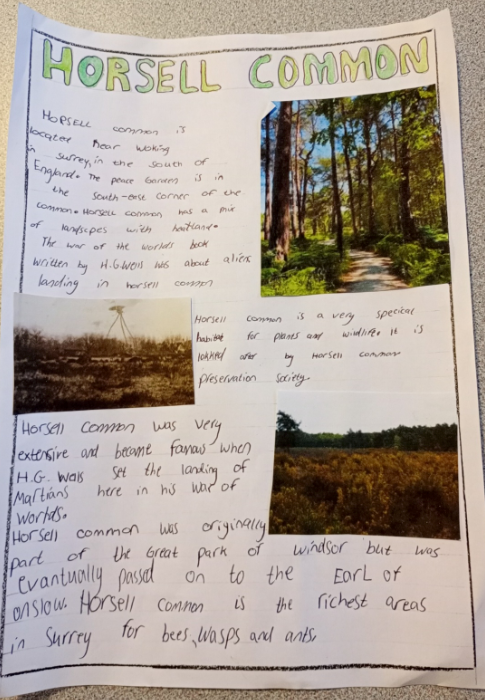 HORSELL COMMON
HOPSELL common is
located near woking
in surrey, in the south of
England. The peace Garden is in
the south-east corner of the
common. Horsell common has a mix
of landscapes with heathland.
The war of the worlds book
written by H.G.Wells was about aliens
landing in horsell common
Horsell common is a very speical
habitat for planes and wildlife. It is
looked after by Horsell common
preservation society
Horsell Common was very
extensive and became famous when
H.G. Wells set the landing of
Martians here in his war of
worlds.
Horsell common was originally
part of the Great park of windsor but was
evantually passed on to the EarL of
onslow. Horsell common is the richest areas
in surrey for bees, wasps and ants.